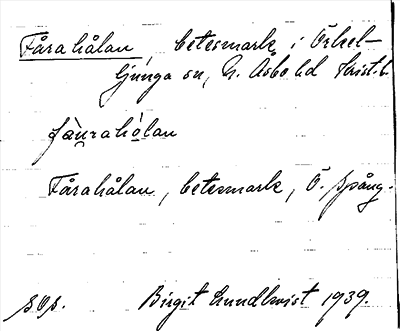 Fårahålan, betesmark i Örkel-
ljunga sn, N. Åsbo hd Krist. l.
Fårahålan, betesmark, Ö. Spång.
Birgit Lundkvist 1939.